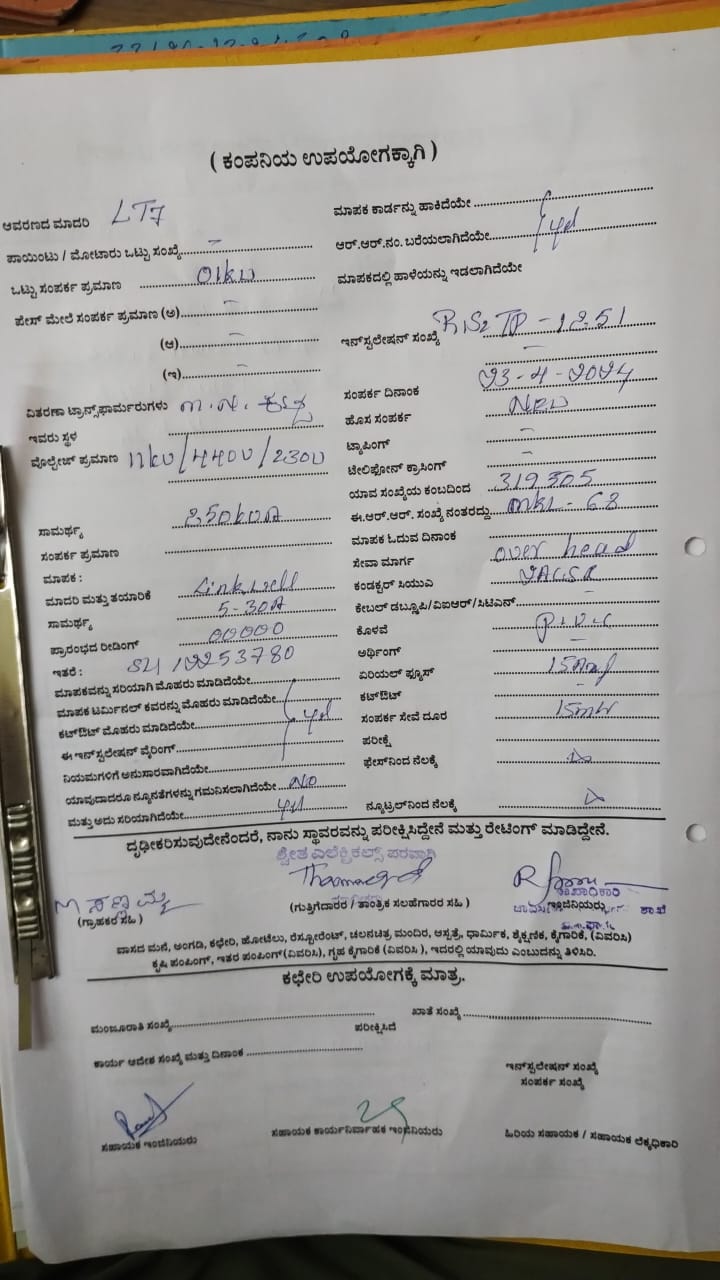 ( ಕಂಪನಿಯ ಉಪಯೋಗಕ್ಕಾಗಿ )
ಆವರಣದ ಮಾದರಿ LT7
ಪಾಯಿಂಟು / ಮೋಟಾರು ಒಟ್ಟು ಸಂಖ್ಯೆ -
ಒಟ್ಟು ಸಂಪರ್ಕ ಪ್ರಮಾಣ 01kW
ಪೇಸ್ ಮೇಲೆ ಸಂಪರ್ಕ ಪ್ರಮಾಣ (ಅ) -
(ಆ) -
(ಇ) -
ವಿತರಣಾ ಟ್ರಾನ್ಸ್‌ಫಾರ್ಮರುಗಳು
ಇವರು ಸ್ಥಳ
ವೋಲ್ಟೇಜ್ ಪ್ರಮಾಣ 11kv/440v/230v
ಸಾಮರ್ಥ್ಯ 250kVA
ಸಂಪರ್ಕ ಪ್ರಮಾಣ
ಮಾಪಕ :
ಮಾದರಿ ಮತ್ತು ತಯಾರಿಕೆ Linkwell
ಸಾಮರ್ಥ್ಯ 5-30A
ಪ್ರಾರಂಭದ ರೀಡಿಂಗ್ 00000
ಇತರೆ :
ಮಾಪಕವನ್ನು ಸರಿಯಾಗಿ ಮೊಹರು ಮಾಡಿದೆಯೇ
ಮಾಪಕ ಟರ್ಮಿನಲ್ ಕವರನ್ನು ಮೊಹರು ಮಾಡಿದೆಯೇ
ಕಟ್‌ಔಟ್ ಮೊಹರು ಮಾಡಿದೆಯೇ yes
ಈ ಇನ್‌ಸ್ಟಲೇಷನ್ ವೈರಿಂಗ್
ನಿಯಮಗಳಿಗೆ ಅನುಸಾರವಾಗಿದೆಯೇ
ಯಾವುದಾದರೂ ನ್ಯೂನತೆಗಳನ್ನು ಗಮನಿಸಲಾಗಿದೆಯೇ No
ಮತ್ತು ಅದು ಸರಿಯಾಗಿದೆಯೇ yes
ಮಾಪಕ ಕಾರ್ಡನ್ನು ಹಾಕಿದೆಯೇ
ಆರ್.ಆರ್.ನಂ. ಬರೆಯಲಾಗಿದೆಯೇ yes
ಮಾಪಕದಲ್ಲಿ ಹಾಳೆಯನ್ನು ಇಡಲಾಗಿದೆಯೇ
ಇನ್‌ಸ್ಟಲೇಷನ್ ಸಂಖ್ಯೆ
-
ಸಂಪರ್ಕ ದಿನಾಂಕ 23-4-2024
ಹೊಸ ಸಂಪರ್ಕ NEW
ಟ್ಯಾಪಿಂಗ್ -
ಟೆಲಿಫೋನ್ ಕ್ರಾಸಿಂಗ್ -
ಯಾವ ಸಂಖ್ಯೆಯ ಕಂಬದಿಂದ 319505
ಈ.ಆರ್.ಆರ್. ಸಂಖ್ಯೆ ನಂತರದ್ದು
ಮಾಪಕ ಓದುವ ದಿನಾಂಕ
ಸೇವಾ ಮಾರ್ಗ over head
ಕಂಡಕ್ಟರ್ ಸಿಯುಎ
ಕೇಬಲ್ ಡಬ್ಲ್ಯೂಪಿ/ವಿಐಆರ್/ಸಿಟಿಎಸ್ -
ಕೊಳವೆ P.V.C
ಅರ್ಥಿಂಗ್ -
ಏರಿಯಲ್ ಫ್ಯೂಸ್ 15Amp
ಕಟ್‌ಔಟ್ -
ಸಂಪರ್ಕ ಸೇವೆ ದೂರ
ಪರೀಕ್ಷೆ
ಫೇಸ್‌ನಿಂದ ನೆಲಕ್ಕೆ
ನ್ಯೂಟ್ರಲ್‌ನಿಂದ ನೆಲಕ್ಕೆ
ದೃಢೀಕರಿಸುವುದೇನೆಂದರೆ, ನಾನು ಸ್ಥಾವರವನ್ನು ಪರೀಕ್ಷಿಸಿದ್ದೇನೆ ಮತ್ತು ರೇಟಿಂಗ್ ಮಾಡಿದ್ದೇನೆ.
ಶ್ವೇತ ಎಲೆಕ್ಟ್ರಿಕಲ್ಸ್ ಪರವಾಗಿ
(ಗ್ರಾಹಕರ ಸಹಿ )
(ಗುತ್ತಿಗೆದಾರರ / ತಾಂತ್ರಿಕ ಸಲಹೆಗಾರರ ಸಹಿ )
ಶಾಖಾಧಿಕಾರಿ
ಇಂಜಿನಿಯರು
ಶಾಖೆ
ವಾಸದ ಮನೆ, ಅಂಗಡಿ, ಕಛೇರಿ, ಹೋಟೆಲು, ರೆಸ್ಟೋರೆಂಟ್, ಚಲನಚಿತ್ರ ಮಂದಿರ, ಆಸ್ಪತ್ರೆ, ಧಾರ್ಮಿಕ, ಶೈಕ್ಷಣಿಕ, ಕೈಗಾರಿಕೆ, (ವಿವರಿಸಿ)
ಕೃಷಿ ಪಂಪಿಂಗ್, ಇತರ ಪಂಪಿಂಗ್ (ವಿವರಿಸಿ), ಗೃಹ ಕೈಗಾರಿಕೆ (ವಿವರಿಸಿ ), ಇದರಲ್ಲಿ ಯಾವುದು ಎಂಬುದನ್ನು ತಿಳಿಸಿರಿ.
ಕಛೇರಿ ಉಪಯೋಗಕ್ಕೆ ಮಾತ್ರ.
ಮಂಜೂರಾತಿ ಸಂಖ್ಯೆ
ಪರೀಕ್ಷಿಸಿದೆ
ಖಾತೆ ಸಂಖ್ಯೆ
ಕಾರ್ಯ ಆದೇಶ ಸಂಖ್ಯೆ ಮತ್ತು ದಿನಾಂಕ
ಇನ್‌ಸ್ಟಲೇಷನ್ ಸಂಖ್ಯೆ
ಸಂಪರ್ಕ ಸಂಖ್ಯೆ
ಸಹಾಯಕ ಇಂಜಿನಿಯರು
ಸಹಾಯಕ ಕಾರ್ಯನಿರ್ವಾಹಕ ಇಂಜಿನಿಯರು
ಹಿರಿಯ ಸಹಾಯಕ / ಸಹಾಯಕ ಲೆಕ್ಕಧಿಕಾರಿ